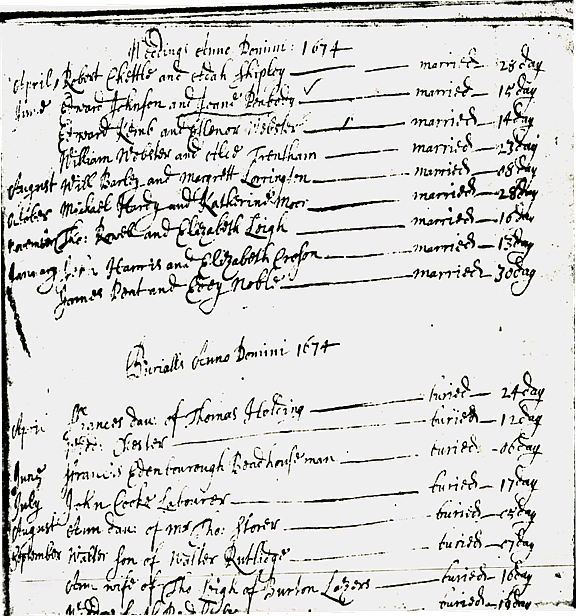 Weddings Anno Domini: 1674
April, Robert Chettle and Shipley married 28 day
June Edward Johnson and Joane Peabody married 15 day
Edward Kemb and Ellenor Webster married 14 day
William Webster and Alce Trentham married 23 day
August Will Barly and Margrett Lovington married 08 day
October Michael Hardy and Katherine Moor married 28 day
november Tho: Rowell and Elizabeth Leigh married 16 day
January John Harris and Elizabeth Croson married 13 day
James Pent and Noble married 30 day
Burialls Anno Domini 1674
April Frances dau: of Thomas Holding buried 24 day
Chester buried 12 day
June Francis Edenbourough Beadhouseman buried 06 day
July John Cocke Labourer buried 17 day
August Ann dau: of mr Tho: Storer buried 05 day
September Walter son of Walter Rutlidge buried 07 day
Ann wife of Tho Leigh of Burton Lazers buried 10 day
buried 19 day